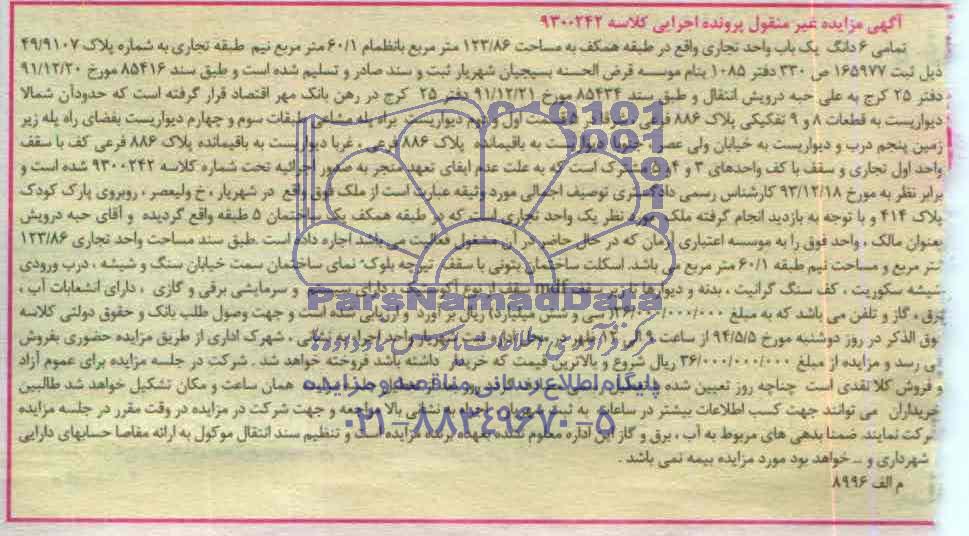 آگهی مزایده غیر منقول پرونده اجرایی کلاسه ۹۳۰۰۲۴۲
تمامی ۶ دانگ یک باب واحد تجاری واقع در طبقه همکف به مساحت ۱۲۳/۸۶ متر مربع بانظمام ۶۰/۱ متر مربع نیم طبقه تجاری به شماره پلاک ۴۹/۹۱۰۷
ذیل ثبت ۱۶۵۹۷۷ ص ۳۳۰ دفتر ۱۰۸۵ بنام موسسه قرض الحسنه بسیجیان شهریار ثبت و سند صادر و تسلیم شده است و طبق سند ۸۵۴۱۶ مورخ ۹۱/۱۲/۲۰
دفتر ۲۵ کرج به علی حبه درویش انتقال و طبق سند ۸۵۴۳۴ مورخ ۹۱/۱۲/۲۱ دفتر ۲۵ کرج در رهن بانک مهر اقتصاد قرار گرفته است که حدودآن شمالا
دیواریست به قطعات ۸ و ۹ تفکیکی پلاک ۸۸۶ فرعی ، شرقا در ۵ قسمت اول و دوم دیواریست براه پله مشاعی طبقات سوم و چهارم دیواریست بفضای راه پله زیر
زمین پنجم درب و دیواریست به خیابان ولی عصر ، جنوبا دیواریست به باقیمانده پلاک ۸۸۶ فرعی ، غربا دیواریست به باقیمانده پلاک ۸۸۶ فرعی کف با سقف
واحد اول تجاری و سقف با کف واحدهای ۳ و ۴ و ۵ مشترک است که به علت عدم ایفای تعهد منجر به صدور اجرائیه تحت شماره کلاسه ۹۳۰۰۲۴۲ شده است و
برابر نظر به مورخ ۹۳/۱۲/۱۸ کارشناس رسمی دادگستری توصیف اجمالی مورد وثیقه عبارت است از ملک فوق واقع در شهریار ، خ ولیعصر ، روبروی پارک کودک
پلاک ۴۱۴ و با توجه به بازدید انجام گرفته ملک مورد نظر یک واحد تجاری است که در طبقه همکف یک ساختمان ۵ طبقه واقع گردیده و آقای حبه درویش
بعنوان مالک ، واحد فوق را به موسسه اعتباری آرمان که در حال حاضر در آن مشغول فعالیت می باشد اجاره داده است .طبق سند مساحت واحد تجاری ۱۲۳/۸۶
متر مربع و مساحت نیم طبقه ۶۰/۱ متر مربع می باشد. اسکلت ساختمان بتونی با سقف تیرچه بلوک نمای ساختمان سمت خیابان سنگ و شیشه ، درب ورودی
شیشه سکوریت ، کف سنگ گرانیت ، بدنه و دیوارها mdf سقف از نوع آکوستیک ، دارای سیستم و سرمایشی برقی و گازی ، دارای انشعابات آب ،
برق ، گاز و تلفن می باشد که به مبلغ ۳۶/۰۰۰/۰۰۰/۰۰۰ (سی و شش میلیارد) ریال برآورد و ارزیابی شده است و جهت وصول طلب بانک و حقوق دولتی کلاسه
فوق الذکر در روز دوشنبه مورخ ۹۴/۵/۵ از ساعت ۹ الی ۱۲ شهرک اداری از طریق مزایده حضوری بفروش
می رسد و مزایده از مبلغ ۳۶/۰۰۰/۰۰۰/۰۰۰ ریال شروع و بالاترین قیمت که خریدار داشته باشد فروخته خواهد شد . شرکت در جلسه مزایده برای عموم آزاد
و فروش کلا نقدی است چناچه روز تعیین شده همان ساعت و مکان تشکیل خواهد شد طالبین
خریداران می توانند جهت کسب اطلاعات بیشتر در ساعات به ثبت مراجعه و جهت شرکت در مزایده در وقت مقرر در جلسه مزایده
شرکت نمایند. ضمنا بدهی های مربوط به آب ، برق و گاز این اداره معلوم نشده بعهده برنده مزایده است و تنظیم سند انتقال موکول به ارائه مفاصا حسابهای دارایی
شهرداری و ... خواهد بود مورد مزایده بیمه نمی باشد .
م الف ۸۹۹۶
ParsNamadData
پایگاه اطلاع رسانی مناقصه و مزایده
۰۲۱-۸۸۳۴۹۶۷۰-۵